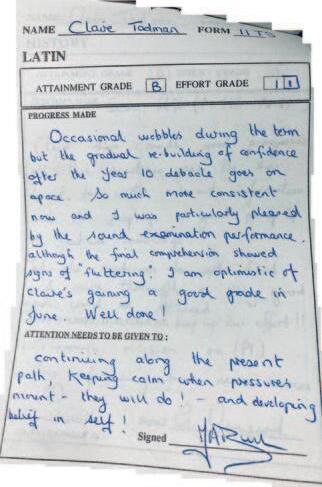 NAME Claire Todman FORM 11TS
LATIN
ATTAINMENT GRADE B EFFORT GRADE 1
PROGRESS MADE
Occasional wobbles during the term
but the gradual re-building of confidence
after the Year 10 debacle goes on
apace. So much more consistent
now and I was particularly pleased
by the sound examination performance,
although the final comprehension showed
signs of "fluttering". I am optimistic of
Claire's gaining a good grade in
June. Well done!
ATTENTION NEEDS TO BE GIVEN TO :
continuing along the present
path, keeping calm when pressures
mount - they will do! - and developing
belief in self!
Signed